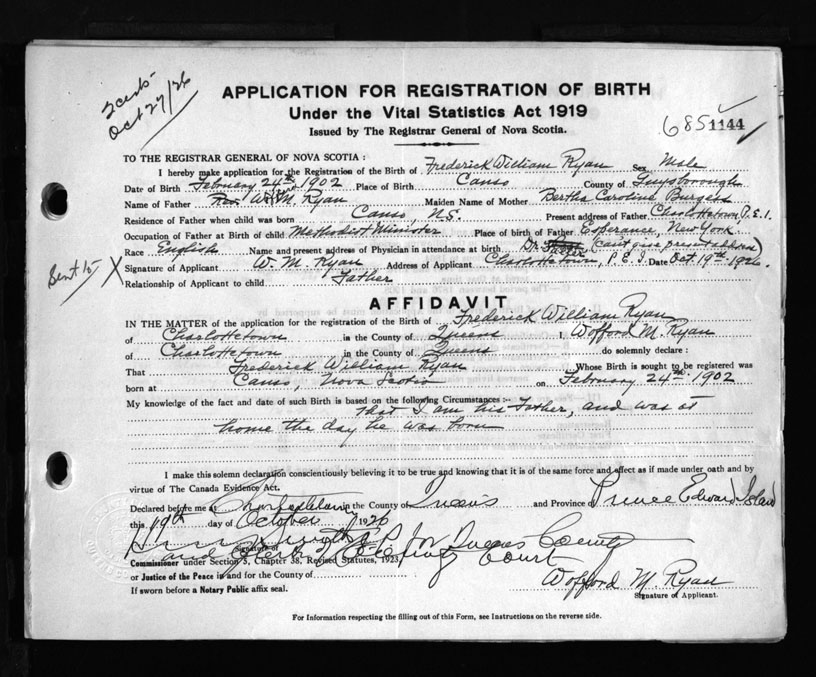 2 certs
Oct 27/26
APPLICATION FOR REGISTRATION OF BIRTH
Under the Vital Statistics Act 1919
Issued by The Registrar General of Nova Scotia.
685 1144
TO THE REGISTRAR GENERAL OF NOVA SCOTIA :
I hereby make application for the Registration of the Birth of Frederick William Ryan Sex Male
Date of Birth February 24th 1902 Place of Birth Canso County of Guysborough
Name of Father Rev. W. M. Ryan Maiden Name of Mother Bertha Caroline Burgess
Residence of Father when child was born Canso, N.S. Present address of Father Charlottetown P.E.I.
Occupation of Father at Birth of child Methodist Minister Place of birth of Father Esperance, New York
Race English Name and present address of Physician in attendance at birth Dr. (can't give present address)
Sent to X Signature of Applicant W. M. Ryan Address of Applicant Charlottetown, P.E.I. Date Oct. 19th 1926.
Relationship of Applicant to child Father
AFFIDAVIT
IN THE MATTER of the application for the registration of the Birth of Frederick William Ryan
of Charlottetown in the County of Queens I, Wofford M. Ryan
of Charlottetown in the County of Queens do solemnly declare :
That Frederick William Ryan Whose Birth is sought to be registered was
born at Canso, Nova Scotia on February 24th 1902
My knowledge of the fact and date of such Birth is based on the following Circumstances :-
that I am his Father, and was at
home the day he was born
I make this solemn declaration conscientiously believing it to be true and knowing that it is of the same force and effect as if made under oath and by
virtue of The Canada Evidence Act.
Declared before me at Charlottetown in the County of Queens and Province of Prince Edward Island
this 19th day of October 1926
J.P. for Queens County
Signature of
and Clerk of Court
Commissioner under Section 5, Chapter 38, Revised Statutes, 1923
or Justice of the Peace in and for the County of
Wofford M. Ryan
If sworn before a Notary Public affix seal.
Signature of Applicant.
For Information respecting the filling out of this Form, see Instructions on the reverse side.